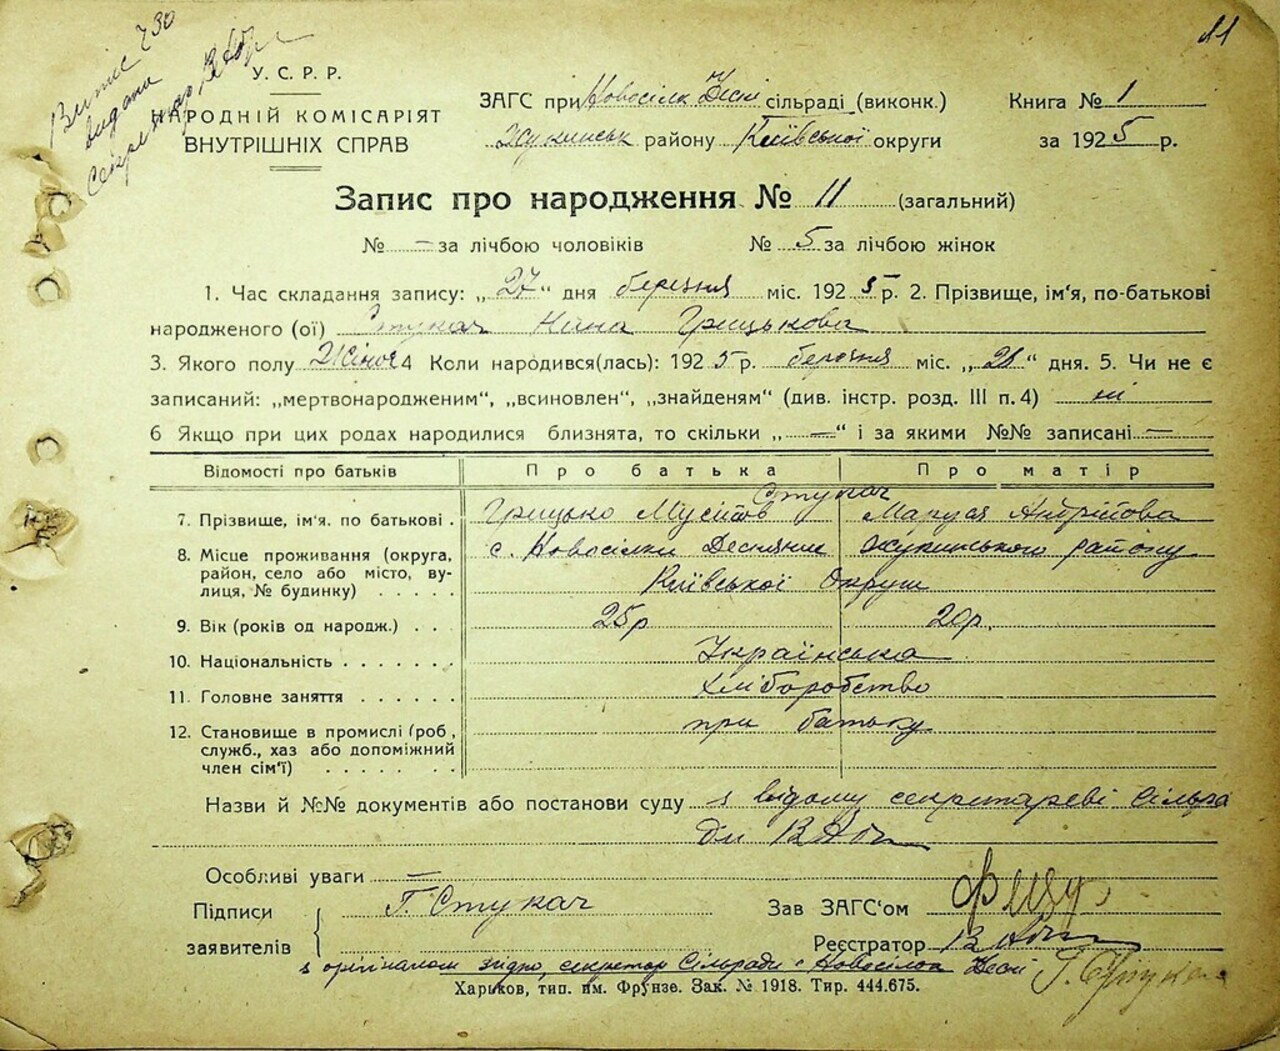 11
Витяг 730
видано
Секретар
У. С. Р. Р.
НАРОДНІЙ КОМІСАРІЯТ
ВНУТРІШНІХ СПРАВ
ЗАГС при Новосілк Десн сільраді (виконк.)
Жукинськ району Київської округи
Книга № 1
за 1925 р.
Запис про народження № 11 (загальний)
№ — за лічбою чоловіків № 5 за лічбою жінок
1. Час складання запису: „27“ дня березня міс. 1925 р. 2. Прізвище, ім‘я, по-батькові
народженого (ої) Стукач Ніна Грицькова
3. Якого полу Жіноч 4 Коли народився(лась): 1925 р. березня міс. „21“ дня. 5. Чи не є
записаний: „мертвонародженим“, „всиновлен“, „знайденям“ (див. інстр. розд. III п. 4) ні
6 Якщо при цих родах народилися близнята, то скільки „—“ і за якими №№ записані —
Відомості про батьків Про батька Про матір
Стукач
7. Прізвище, ім‘я. по батькові . Грицько Мусіїв Маруся Андріїова
8. Місце проживання (округа, с. Новосілки Деснянки Жукинського району
район, село або місто, ву-
лиця, № будинку) . . . . . Київської Округи
9. Вік (років од народж.) . . . 25р 20р.
10. Національність . . . . . . . Українська
11. Головне заняття . . . . . . Хліборобство
12. Становище в промислі (роб, при батьку
служб., хаз або допоміжний
член сім‘ї) . . . . . .
Назви й №№ документів або постанови суду з відому секретареві Сільра
ди
Особливі уваги —
Підписи Г. Стукач
заявителів
Зав ЗАГС‘ом
Реєстратор
з оригіналом згідно, секретар Сільради с Новосілок Десн
Харьков, тип. им. Фрунзе. Зак. № 1918. Тир. 444.675.